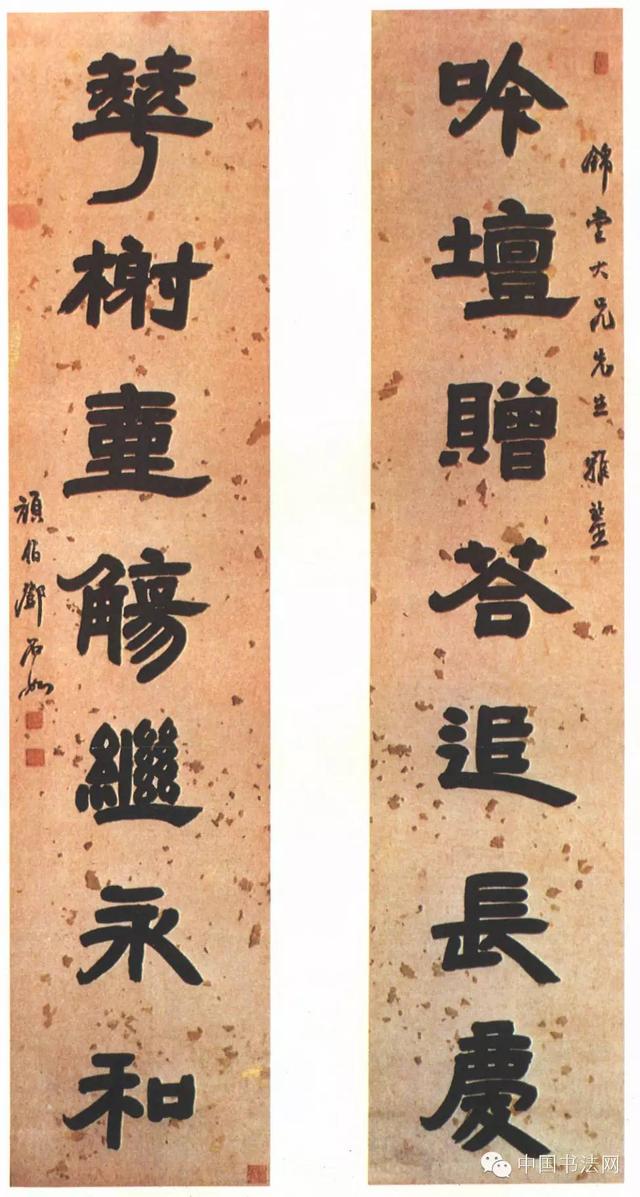 錦堂大兄先生雅鑒
吟壇贈荅追長慶
華榭壺觴繼永和
頑伯鄧石如
中国书法网